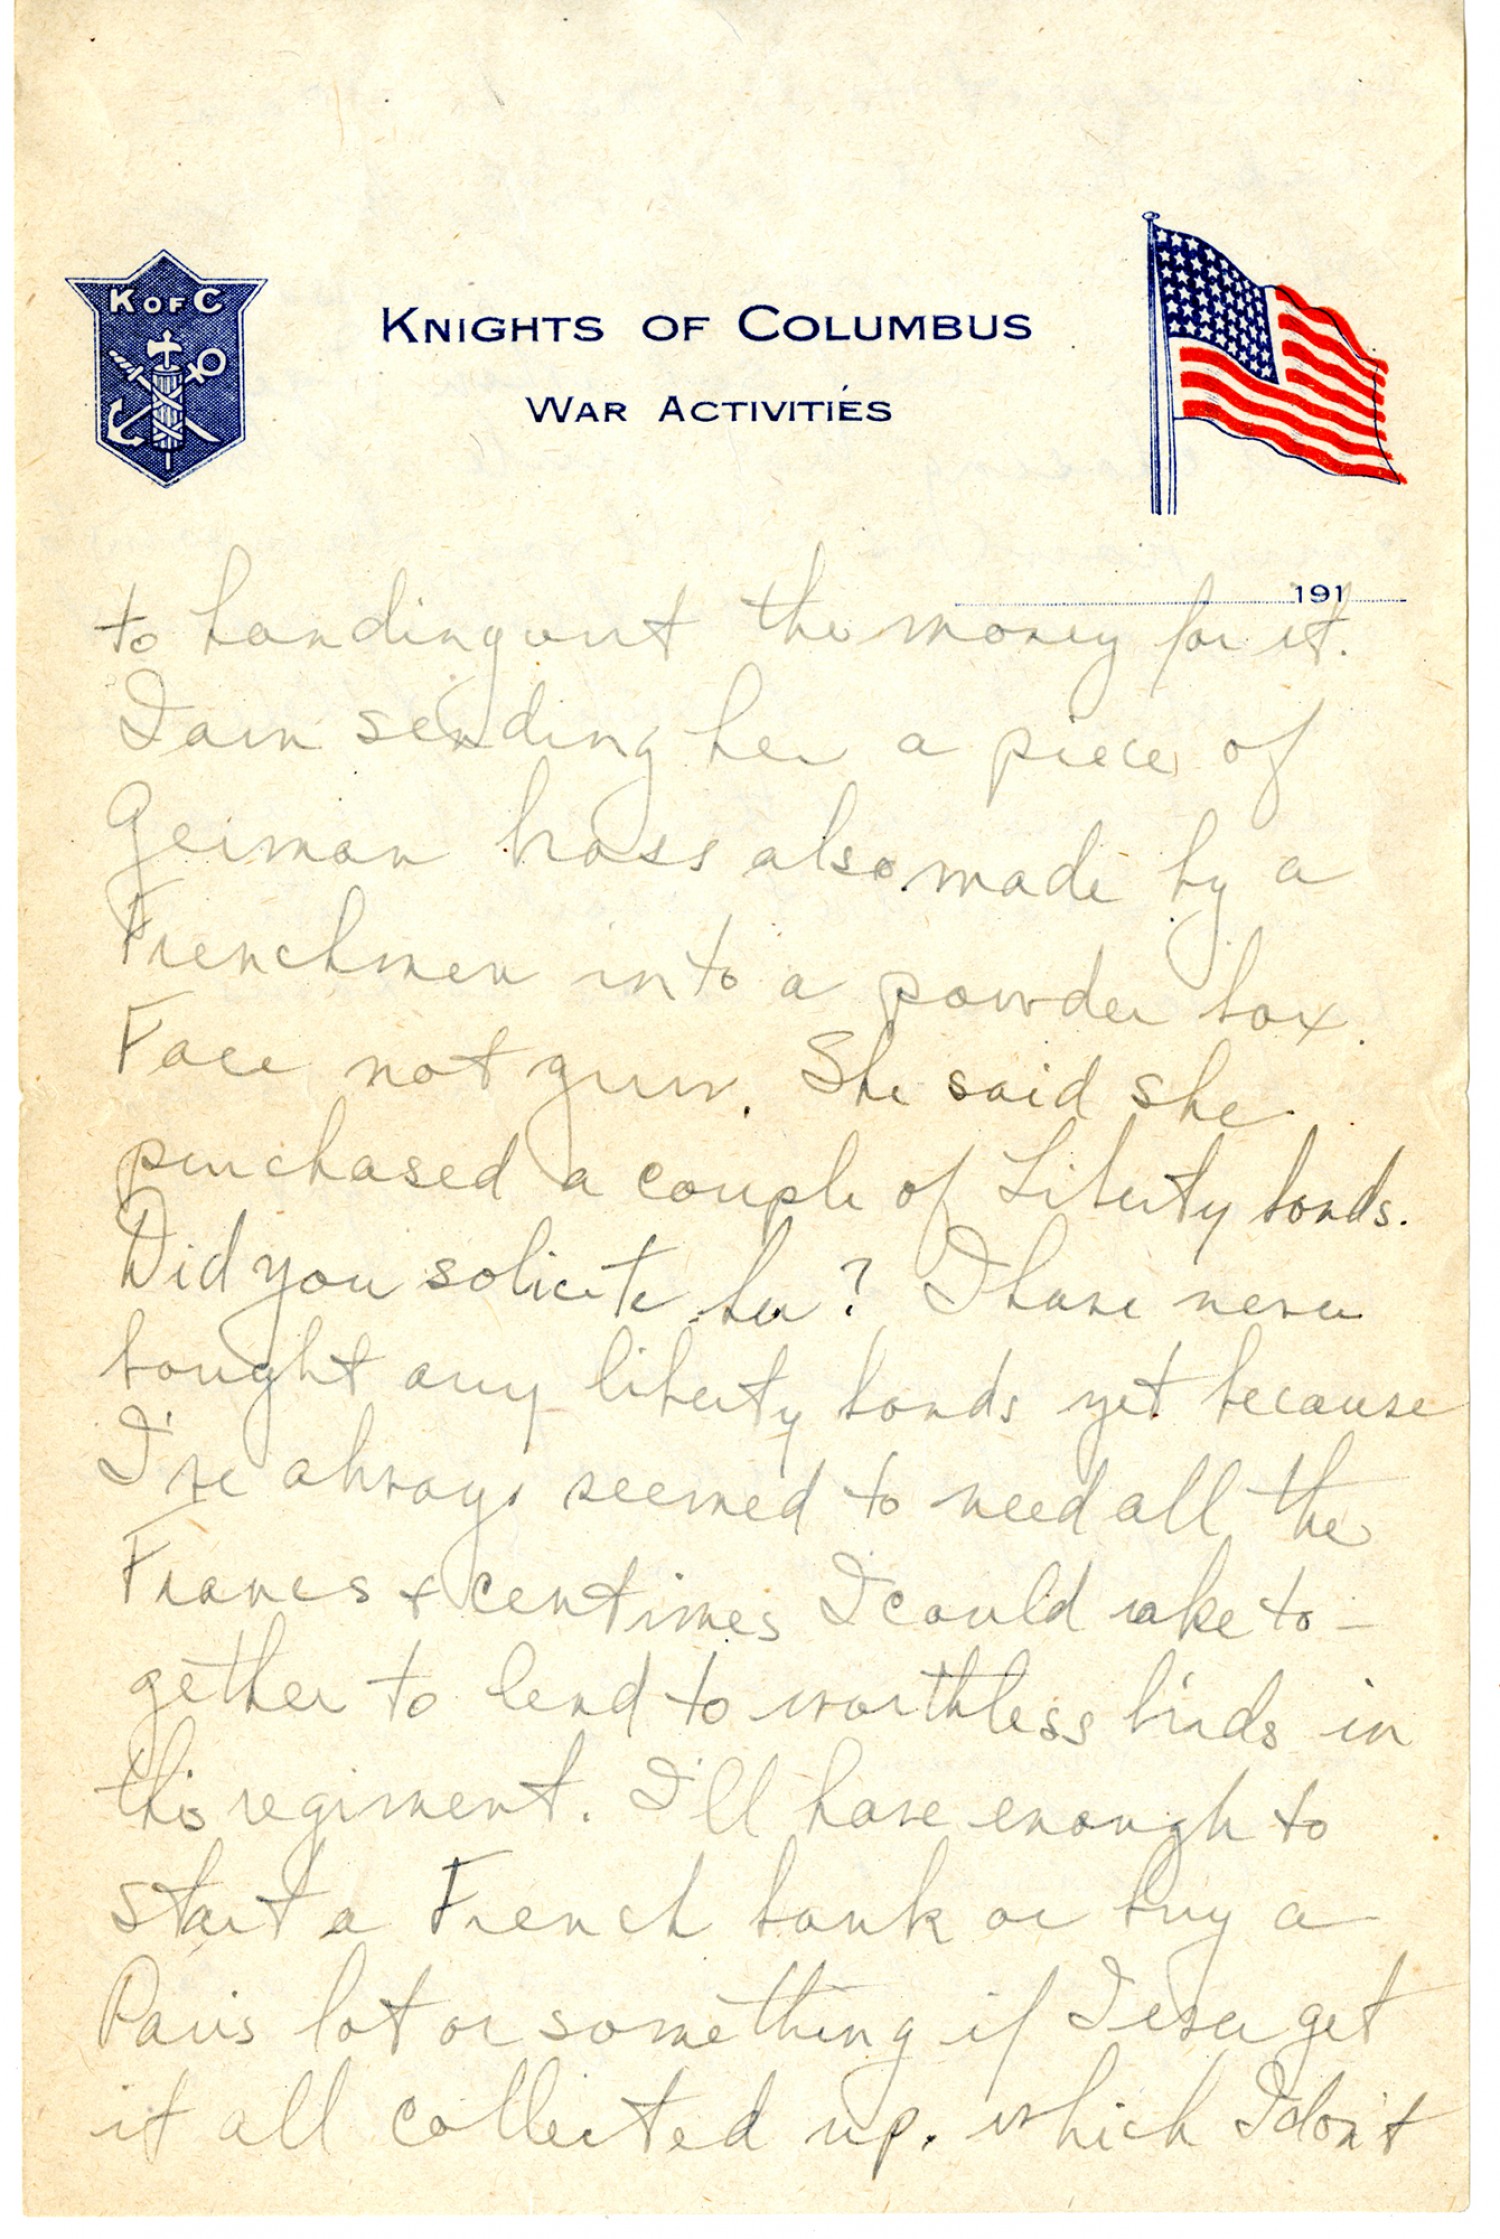 K OF C
KNIGHTS OF COLUMBUS
WAR ACTIVITIES
191
to handing out the money for it.
I am sending her a piece of
German brass also made by a
Frenchmen into a powder box.
Face not gun. She said she
purchased a couple of Liberty bonds.
Did you solicite her? I have never
bought any liberty bonds yet because
I've always seemed to need all the
Francs + centimes I could rake to-
gether to lend to worthless birds in
this regiment. I'll have enough to
start a French bank or buy a
Paris lot or something if I ever get
it all collected up. which I don't